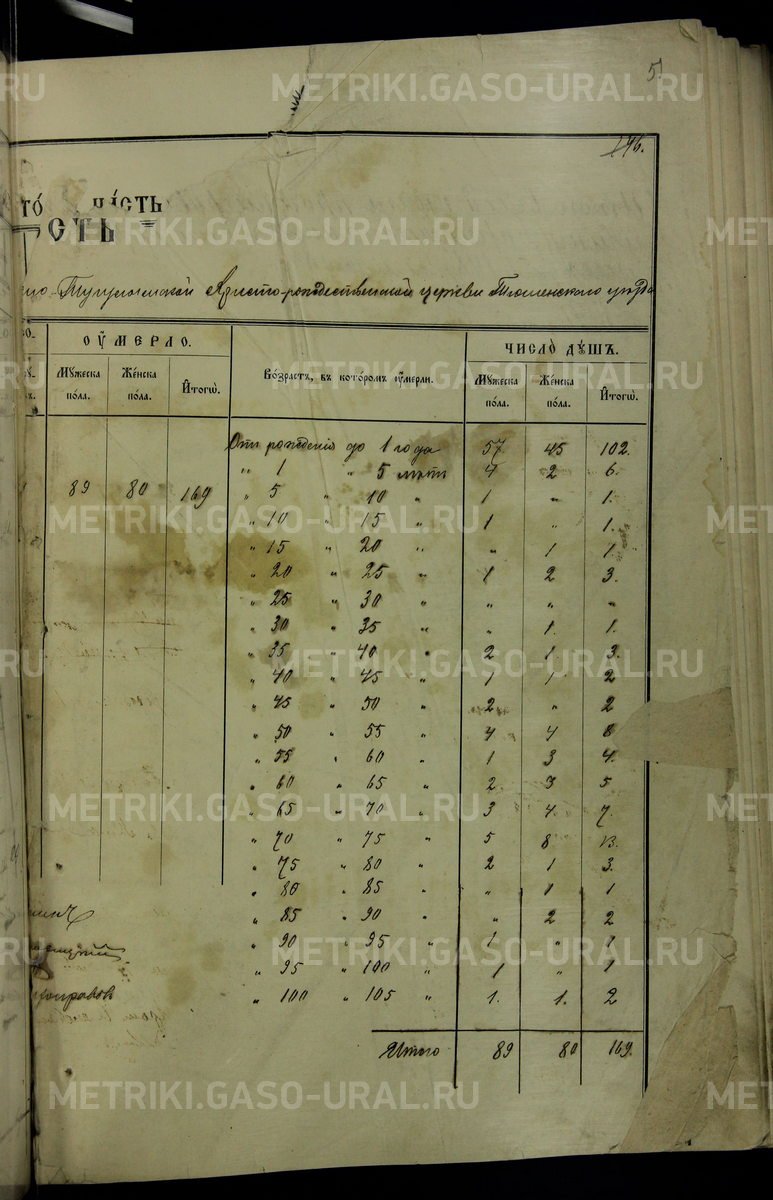 5
146.
то часть
сть
Тугулымской Христо-рождественской церкви Тюменского уезда
ОУМЕРЛО.
Возрастъ, въ которомъ оумерли.
ЧИСЛО ДУШЪ.
Мужеска пола.
Женска пола.
Итогѡ.
Мужеска пола.
Женска пола.
Итогѡ.
89 80 169
Отъ рожденія до 1 года 57 45 102.
" 1 " 5 летъ 4 2 6.
" 5 " 10 " 1 " 1.
" 10 " 15 " 1 " 1.
" 15 " 20 " " 1 1.
" 20 " 25 " 1 2 3.
" 25 " 30 " " " "
" 30 " 35 " " 1. 1.
" 35 " 40 " 2 1 3.
" 40 " 45 " 1 1 2
" 45 " 50 " 2 " 2
" 50 " 55 " 4 4 8
" 55 " 60 " 1 3 4.
" 60 " 65 " 2 3 5
" 65 " 70 " 3 4 7.
" 70 " 75 " 5 8 13.
" 75 " 80 " 2 1 3.
" 80 " 85 " " 1 1
" 85 " 90 " " 2 2
" 90 " 95 " 1 " 1
" 95 " 100 " 1 " 1
" 100 " 105 " 1. 1. 2
Итого 89 80 169.
METRIKI.GASO-URAL.RU